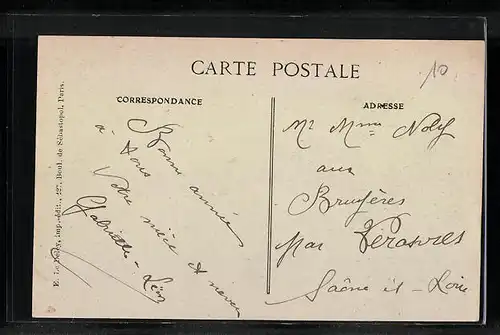 CARTE POSTALE
10
CORRESPONDANCE
ADRESSE
Bonne année
à tous
Votre nièce et neveu
Gabrielle - Léon
Mr Mme
aux
Bruyères
par Vérosvres
Saône et - Loire
E. Le Deley, imp.-édit., 127, Boul. de Sébastopol, Paris.